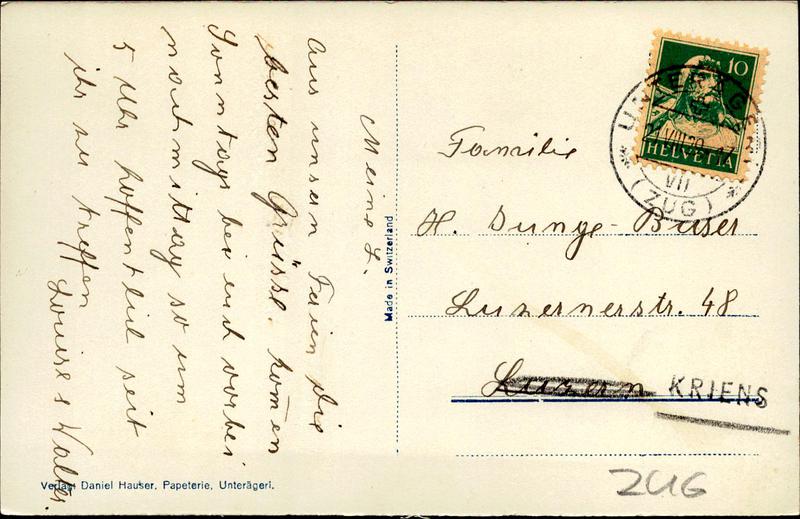 Meine L.
Aus unsern Ferien die
besten Grüsse. komen
Sonntags bei euch vorbei
nachmittag so um
5 Uhr hoffentlich seit
ihr zu treffen
Louise & Walter.
Made in Switzerland
10
HELVETIA
UNTERÄG
VIII
VII
(ZUG)
Familie
H. Dunge-Buser
Luzernerstr. 48
Luzern KRIENS
ZUG
Verlag: Daniel Hauser, Papeterie, Unterägeri.